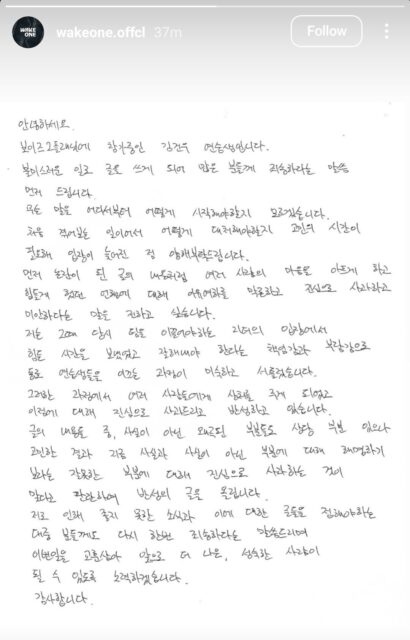 WAKE ONE
wakeone.offcl 37m
Follow
안녕하세요.
보이즈 2플래닛에 참가중인 김건우 연습생입니다.
불미스러운 일로 글로 쓰게 되어 많은 분들께 죄송하다는 말씀
먼저 드립니다.
무슨 말을 어디서부터 어떻게 시작해야할지 모르겠습니다.
처음 겪어보는 일이어서 어떻게 대처해야할지 고민의 시간이
필요해 입장이 늦어진 점 양해부탁드립니다.
먼저 논란이 된 글의 내용처럼 여러 사람의 마음을 아프게 하고
힘들게 했던 언행에 대해 이유여하를 막론하고 진심으로 사과하고
미안하다는 말을 전하고 싶습니다.
저는 그때 당시 팀을 이끌어야하는 리더의 입장에서
힘든 시간을 보냈었고 잘해내야 한다는 책임감과 부담감으로
동료 연습생들을 이끄는 과정이 미숙하고 서툴렀습니다.
그러한 과정에서 여러 사람들에게 상처를 주게 되었고
이점에 대해 진심으로 사과드리고 반성하고 있습니다.
글의 내용들 중, 사실이 아닌 왜곡된 부분들도 상당 부분 있으나
고민한 결과 지금 사실과 사실이 아닌 부분에 대해 해명하기
보다는 잘못한 부분에 대해 진심으로 사과하는 것이
맞다고 판단하여 반성의 글을 올립니다.
저로 인해 좋지 못한 소식과 이에 대한 글들을 접해야하는
대중 분들께도 다시 한번 죄송하다는 말씀드리며
이번일을 교훈삼아 앞으로 더 나은, 성숙한 사람이
될 수 있도록 노력하겠습니다.
감사합니다.